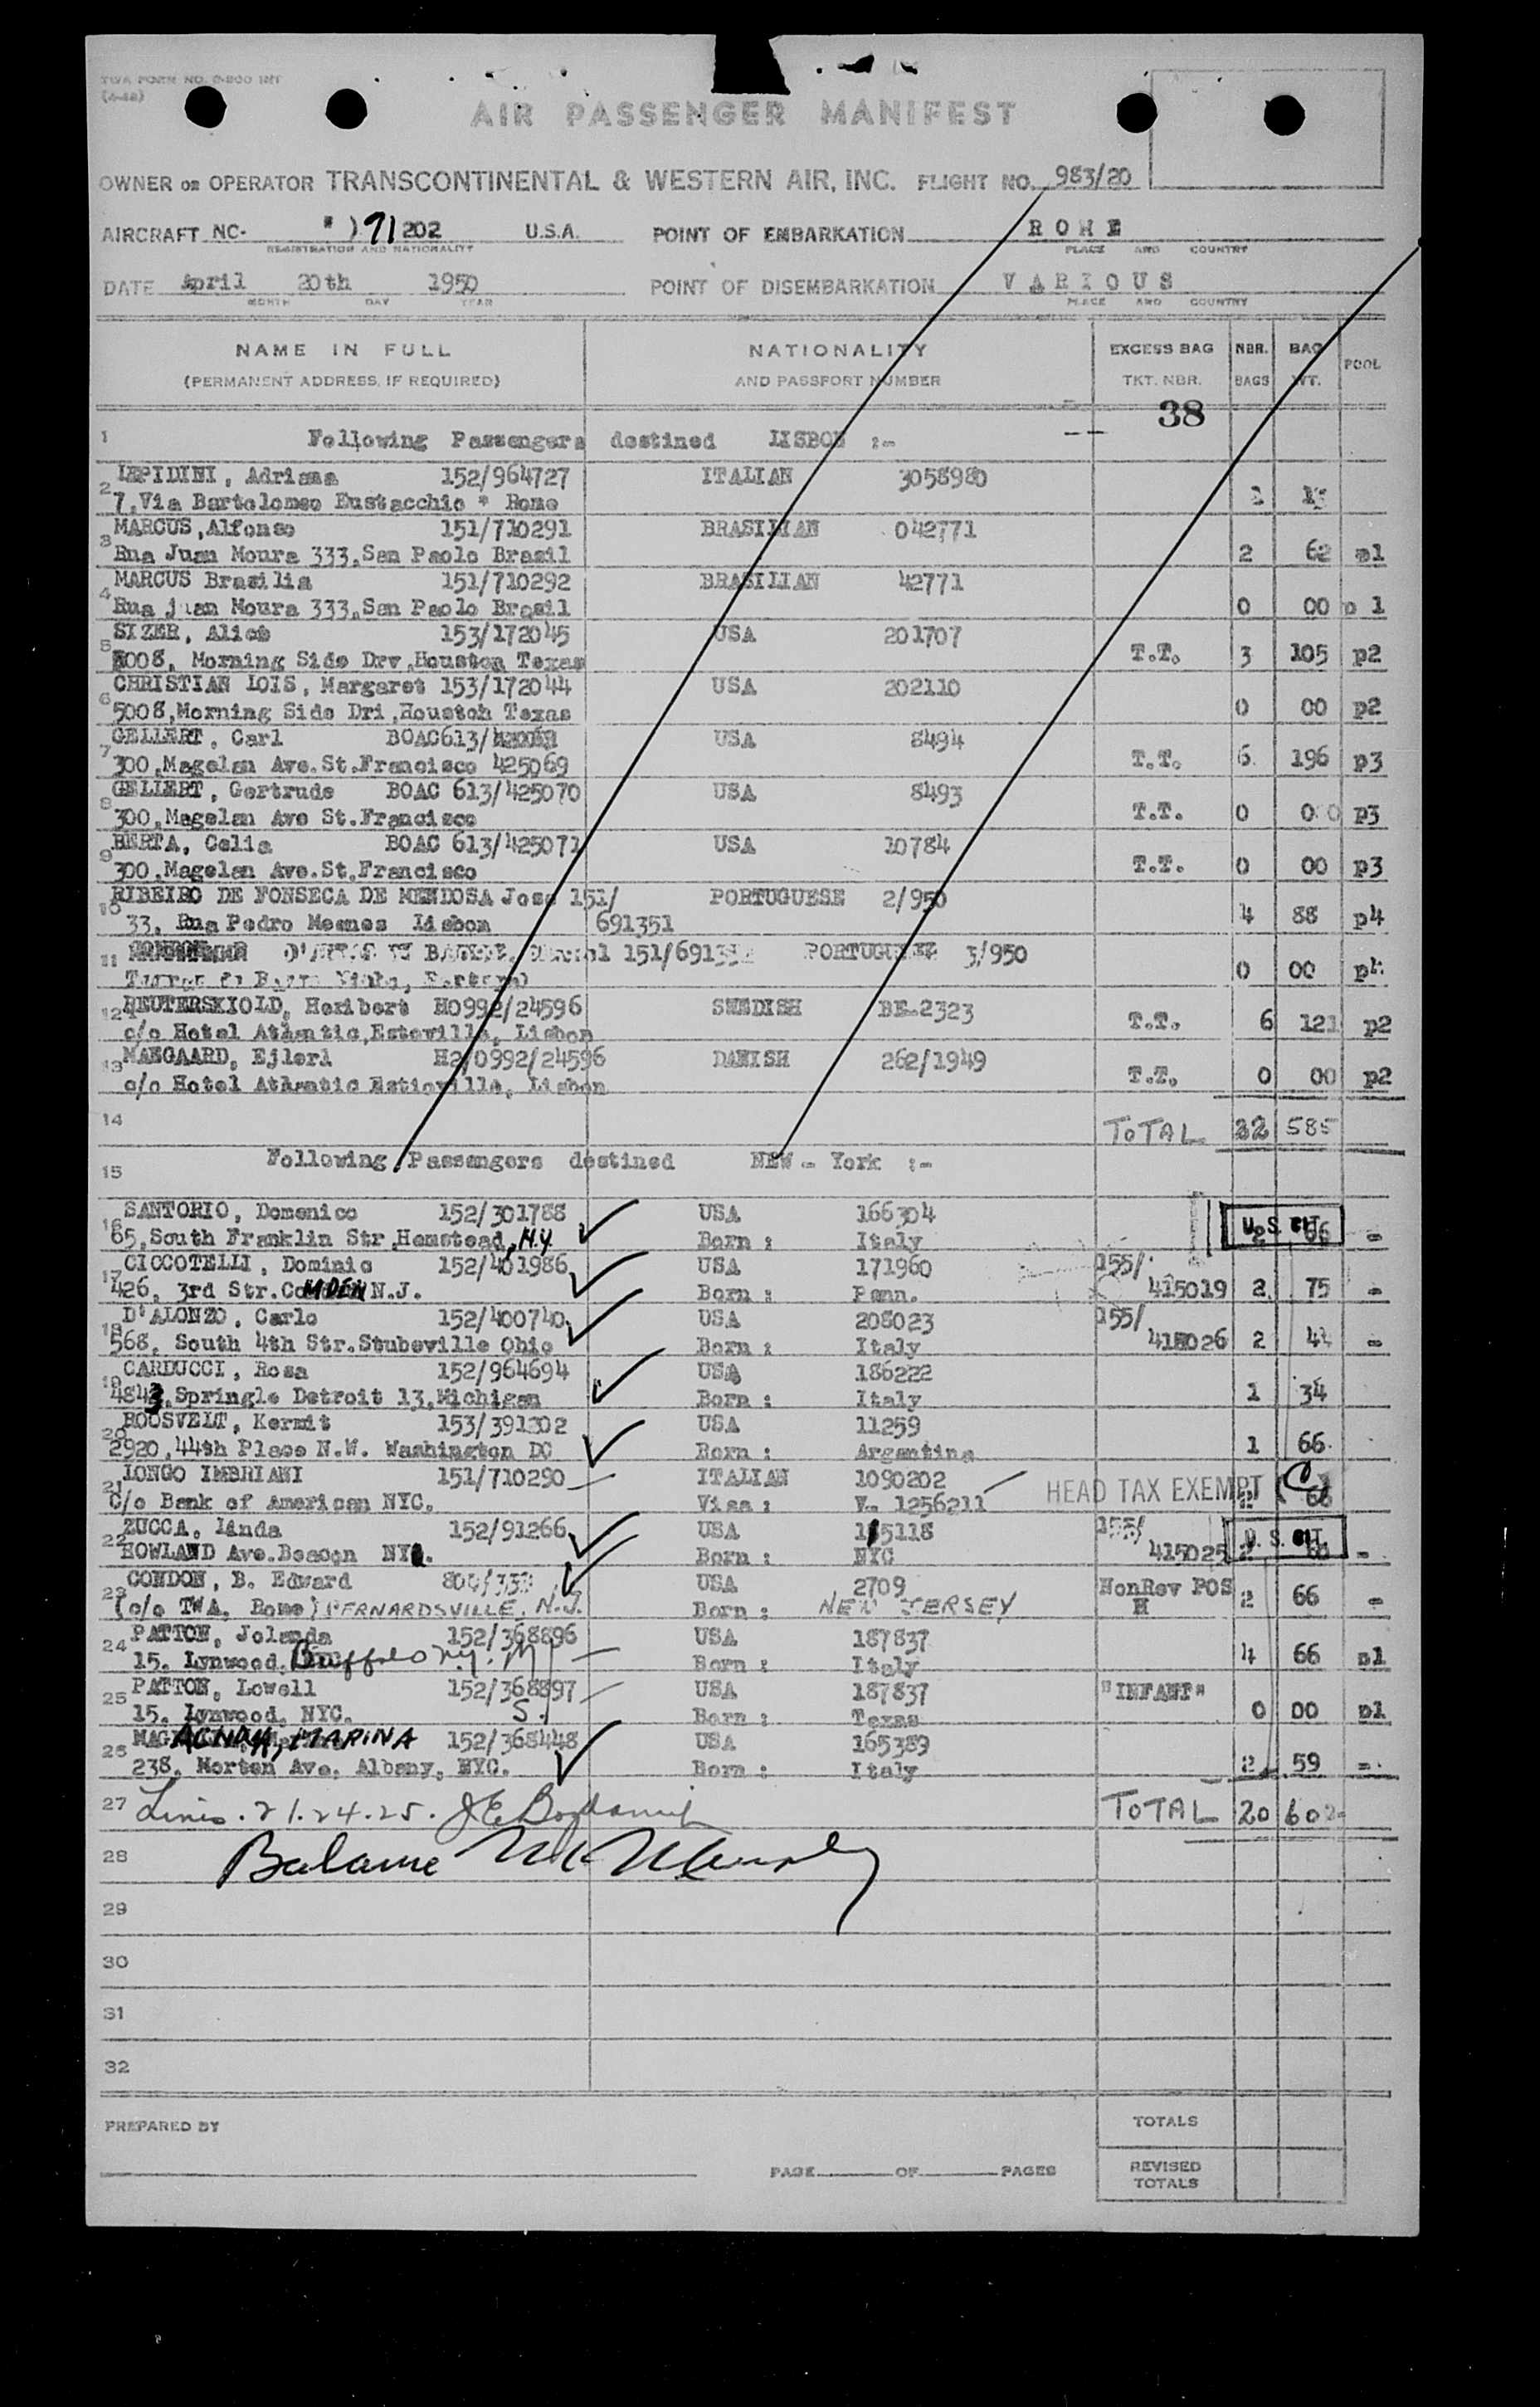 TWA FORM NO. 
AIR PASSENGER MANIFEST
OWNER OR OPERATOR TRANSCONTINENTAL & WESTERN AIR, INC. FLIGHT NO. 983/20
AIRCRAFT NC- 71202 U.S.A. POINT OF EMBARKATION ROME
REGISTRATION AND NATIONALITY PLACE AND COUNTRY
DATE April 20th 1950 POINT OF DISEMBARKATION VARIOUS
MONTH DAY YEAR PLACE AND COUNTRY
NAME IN FULL NATIONALITY EXCESS BAG NBR. BAG POOL
(PERMANENT ADDRESS, IF REQUIRED) AND PASSPORT NUMBER TKT. NBR. BAGS WT.
38
1 Following Passengers destined LISBON :-
2 LEPIDINI, Adriana 152/964727 ITALIAN 3058980
7, Via Bartolomeo Eustacchio * Rome
3 MARCUS, Alfonso 151/710291 BRASILIAN 042771
Rua Juan Moura 333, San Paolo Brasil 2 62 p1
4 MARCUS Brasilia 151/710292 BRASILIAN 42771
Rua juan Moura 333, San Paolo Brasil 0 00 p 1
5 SIZER, Alice 153/172045 USA 201707
5008, Morning Side Drv, Houston Texas T.T. 3 105 p2
6 CHRISTIAN LOIS, Margaret 153/172044 USA 202110
5008, Morning Side Dri, Houston Texas 0 00 p2
7 GELLERT, Carl BOAC613/ USA 8494
300, Magelan Ave. St. Francisco 425069 T.T. 6 196 p3
8 GELLERT, Gertrude BOAC 613/425070 USA 8493
300, Magelan Ave St. Francisco T.T. 0 0 0 p3
9 BERTA, Celia BOAC 613/425071 USA 10784
300, Magelan Ave. St, Francisco T.T. 0 00 p3
10 RIBEIRO DE FONSECA DE MENDOSA Jose 151/ PORTUGUESE 2/950
33, Rua Pedro Meenes Lisbon 691351 4 88 p4
11 PORTUGUESE 3/950
0 00 p4
12 REUTERSKIOLD, Heribert H0992/24596 SWEDISH BE-2323
c/o Hotel Atlantic, Estoville, Lisbon T.T. 6 121 p2
13 MAEGAARD, Ejlerl H2/0992/24596 DANISH 262/1949
c/o Hotel Atlantic Estioville, Lisbon T.T. 0 00 p2
14 TOTAL 22 585
15 Following Passengers destined NEW - York :-
16 SANTORIO, Domenico 152/301788 USA 166304
65, South Franklin Str, Hemstead, N.Y Born : Italy U.S. CIT 2 66 -
17 CICCOTELLI, Dominic 152/401986 USA 171960 155/
426, 3rd Str. CaMDEN N.J. Born : Penn. 415019 2 75 -
18 D'ALONZO, Carlo 152/400740 USA 208023 155/
568, South 4th Str. Stubeville Ohio Born : Italy 415026 2 44 -
19 CARDUCCI, Rosa 152/964694 USA 186222
4843, Springle Detroit 13, Michigan Born : Italy 1 34
20 ROOSVELT, Kermit 153/391302 USA 11259
2920, 44th Place N.W. Washington DC Born : Argentina 1 66
21 LONGO IMBRIANI 151/710290 ITALIAN 1090202
C/o Bank of American NYC. Visa : V- 1256211 HEAD TAX EXEMPT (C)
22 ZUCCA, Linda 152/91266 USA 115118 155/
HOWLAND Ave. Beacon NY. Born : NYC 415025 U.S. CIT -
23 CONDON, B. Edward USA 2709 NonRev POS
(c/o TWA, Rome) BERNARDSVILLE, N.J. Born : NEW JERSEY H 2 66 -
24 PATTON, Jolanda 152/368896 USA 187837
15. Lynwood. Buffalo NY. M Born : Italy 4 66 p1
25 PATTON, Lowell 152/368897 USA 187837 "INFANT"
15. Lynwood. NYC. S. Born : Texas 0 00 p1
26 MAGAGNOLI, MARINA 152/368448 USA 165389
238, Morton Ave. Albany, NYC. Born : Italy 2 59 -
27 Lines. 21. 24. 25. TOTAL 20 602
28 Balance
29
30
31
32
PREPARED BY TOTALS
PAGE OF PAGES REVISED
TOTALS